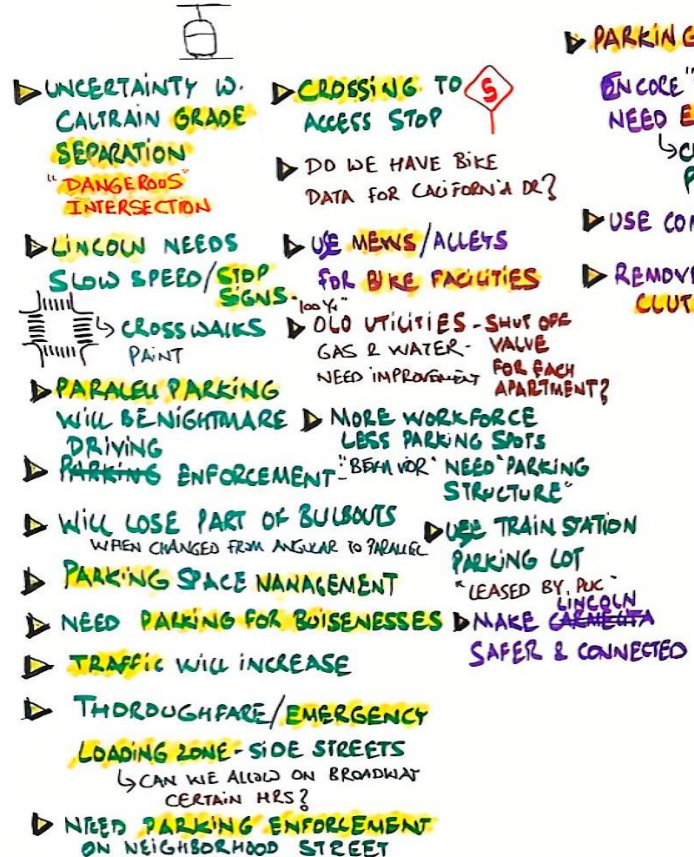 UNCERTAINTY W.
CALTRAIN GRADE
SEPARATION
"DANGEROUS"
INTERSECTION
LINCOLN NEEDS
SLOW SPEED/STOP
SIGNS
CROSSWALKS
PAINT
PARALELL PARKING
WILL BE NIGHTMARE
DRIVING
PARKING ENFORCEMENT - "BEHAVIOR"
WILL LOSE PART OF BULBOUTS
WHEN CHANGED FROM ANGULAR TO PARALLEL
PARKING SPACE MANAGEMENT
NEED PARKING FOR BUISENESSES
TRAFFIC WILL INCREASE
THOROUGHFARE/EMERGENCY
LOADING ZONE - SIDE STREETS
CAN WE ALLOW ON BROADWAY
CERTAIN HRS?
NEED PARKING ENFORCEMENT
ON NEIGHBORHOOD STREET
CROSSING TO S
ACCESS STOP
DO WE HAVE BIKE
DATA FOR CALIFORNIA DR?
USE MEWS/ALLEYS
FOR BIKE FACILITIES
"100%"
OLD UTILITIES - SHUT OFF
GAS & WATER - VALVE
NEED IMPROVEMENT FOR EACH
APARTMENT?
MORE WORKFORCE
LESS PARKING SPOTS
NEED "PARKING
STRUCTURE"
USE TRAIN STATION
PARKING LOT
"LEASED BY PUC"
LINCOLN
MAKE
SAFER & CONNECTED
PARKING
ENCORE "
NEED
USE
REMOVE